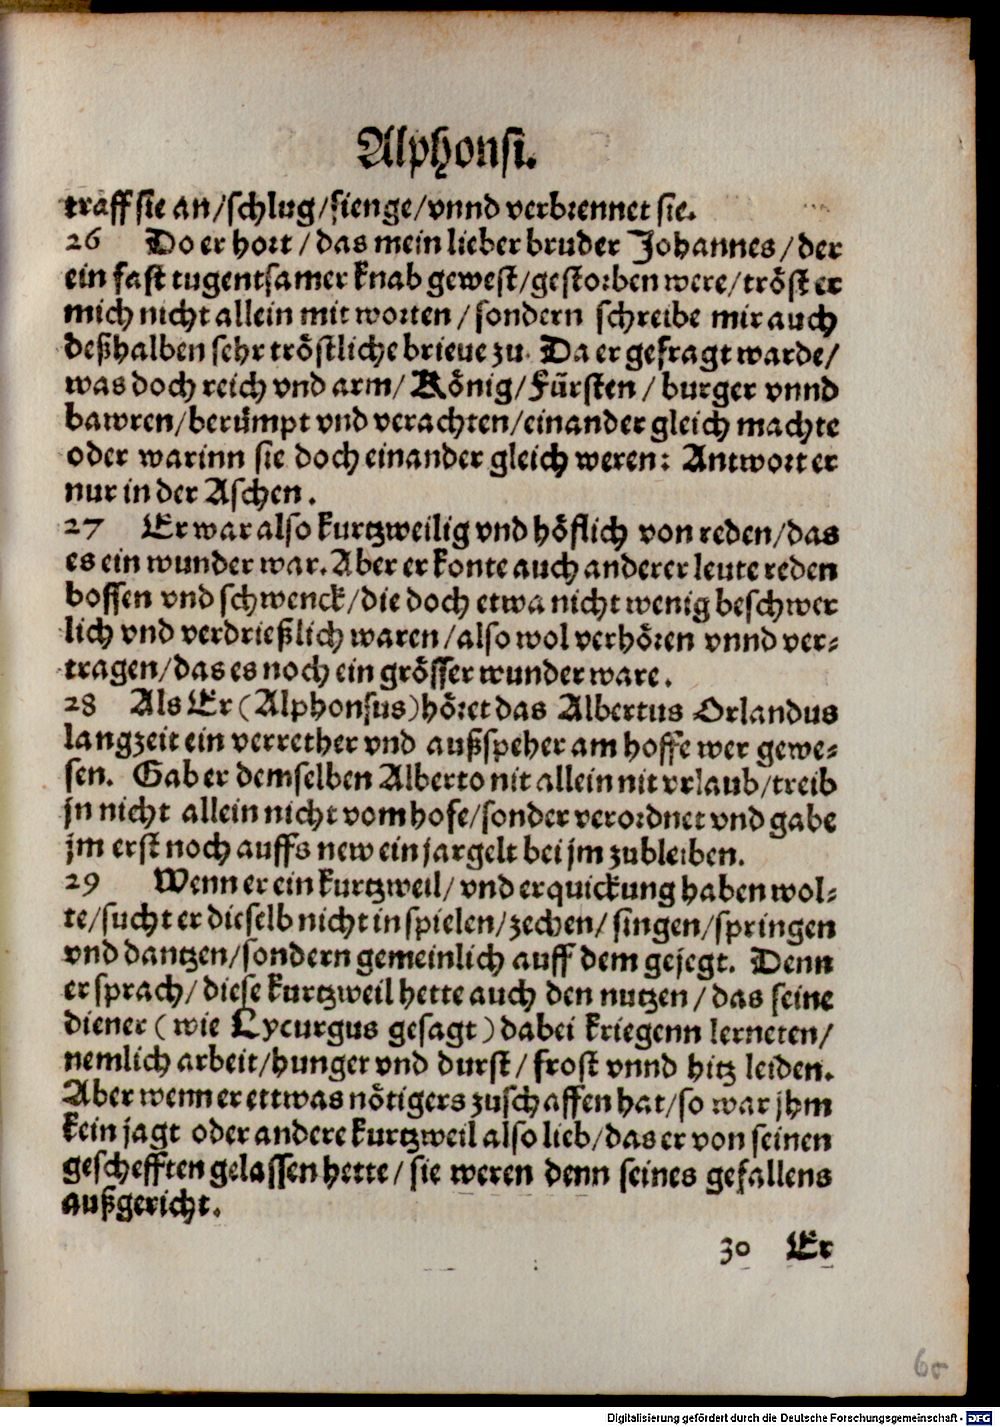 Alphonsi.
traff sie an/schlug/fienge/vnnd verbrennet sie.
26 Do er hort/das mein lieber bruder Johannes/der
ein fast tugentsamer knab gewest/gestorben were/tröst er
mich nicht allein mit worten/sondern schreibe mir auch
deßhalben sehr tröstliche brieue zu. Da er gefragt warde/
was doch reich vnd arm/König/Fürsten/burger vnnd
bawren/berümpt vnd verachten/einander gleich machte
oder warinn sie doch einander gleich weren: Antwort er
nur in der Aschen.
27 Er war also kurtzweilig vnd höflich von reden/das
es ein wunder war. Aber er konte auch anderer leute reden
bossen vnd schwenck/die doch etwa nicht wenig beschwer
lich vnd verdrießlich waren/also wol verhören vnnd ver-
tragen/das es noch ein grösser wunder ware.
28 Als Er (Alphonsus) höret das Albertus Orlandus
langzeit ein verrether vnd außspeher am hoffe wer gewe-
sen. Gab er demselben Alberto nit allein nit vrlaub/treib
jn nicht allein nicht vom hofe/sonder verordnet vnd gabe
jm erst noch auffs new ein jargelt bei jm zubleiben.
29 Wenn er ein kurtzweil/vnd erquickung haben wol-
te/sucht er dieselb nicht in spielen/zechen/singen/springen
vnd dantzen/sondern gemeinlich auff dem gejegt. Denn
er sprach/diese kurtzweil hette auch den nutzen/das seine
diener (wie Lycurgus gesagt) dabei kriegenn lerneten/
nemlich arbeit/hunger vnd durst/frost vnnd hitz leiden.
Aber wenn er ettwas nötigers zuschaffen hat/so war jhm
kein jagt oder andere kurtzweil also lieb/das er von seinen
geschefften gelassen hette/sie weren denn seines gefallens
außgericht.
30 Er
60
Digitalisierung gefördert durch die Deutsche Forschungsgemeinschaft - DFG